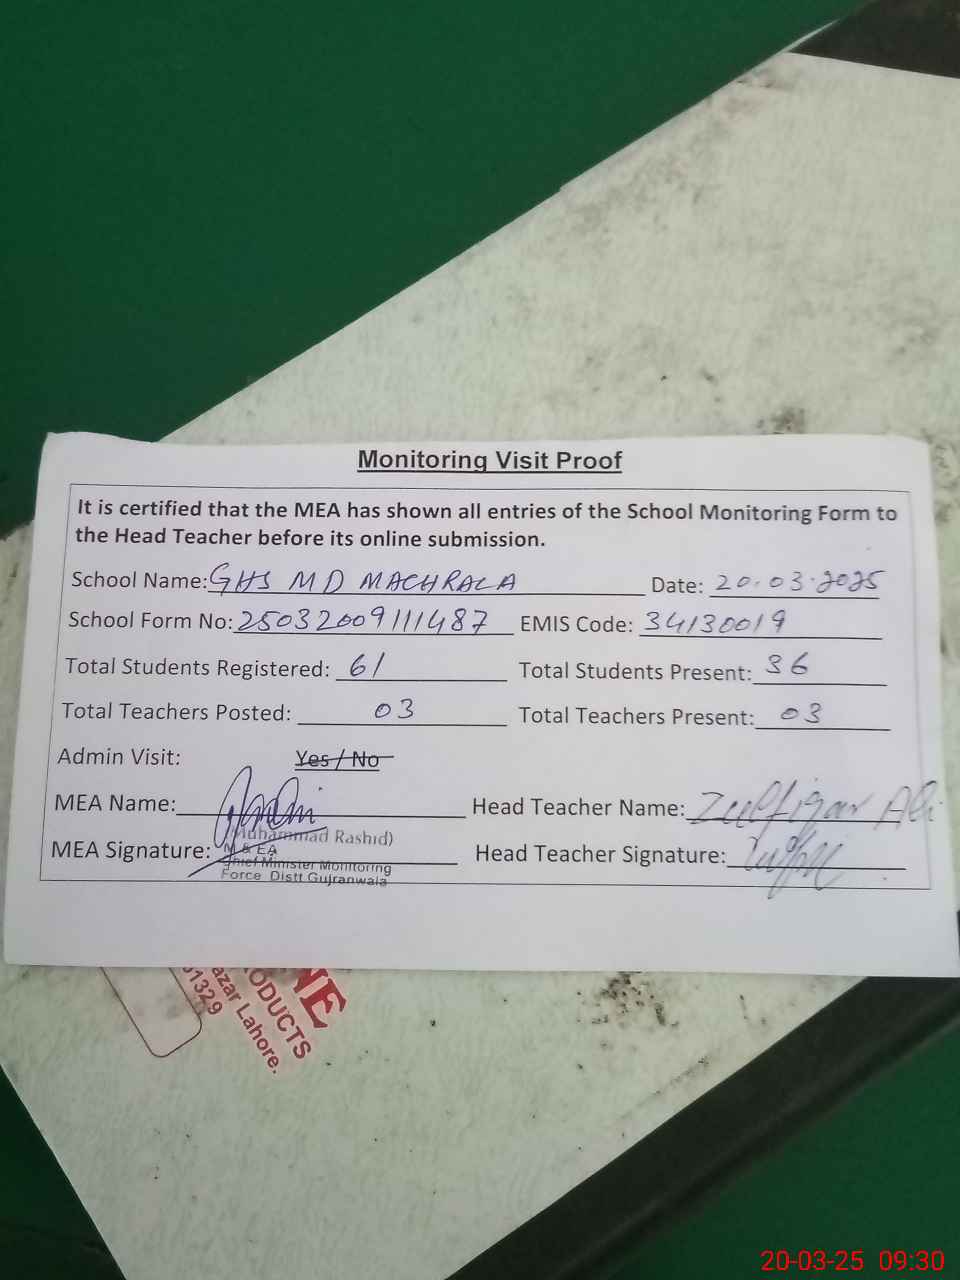 Monitoring Visit Proof
It is certified that the MEA has shown all entries of the School Monitoring Form to
the Head Teacher before its online submission.
School Name: GHS MD MACHRALA Date: 20.03.2025
School Form No: 25032009111487 EMIS Code: 34130019
Total Students Registered: 61 Total Students Present: 36
Total Teachers Posted: 03 Total Teachers Present: 03
Admin Visit: Yes / No
MEA Name: Head Teacher Name: Zulfiqar Ali
(Muhammad Rashid)
MEA Signature: Head Teacher Signature:
M & EA
Chief Minister Monitoring
Force Distt Gujranwala
NE
ODUCTS
azar Lahore.
51329
20-03-25 09:30